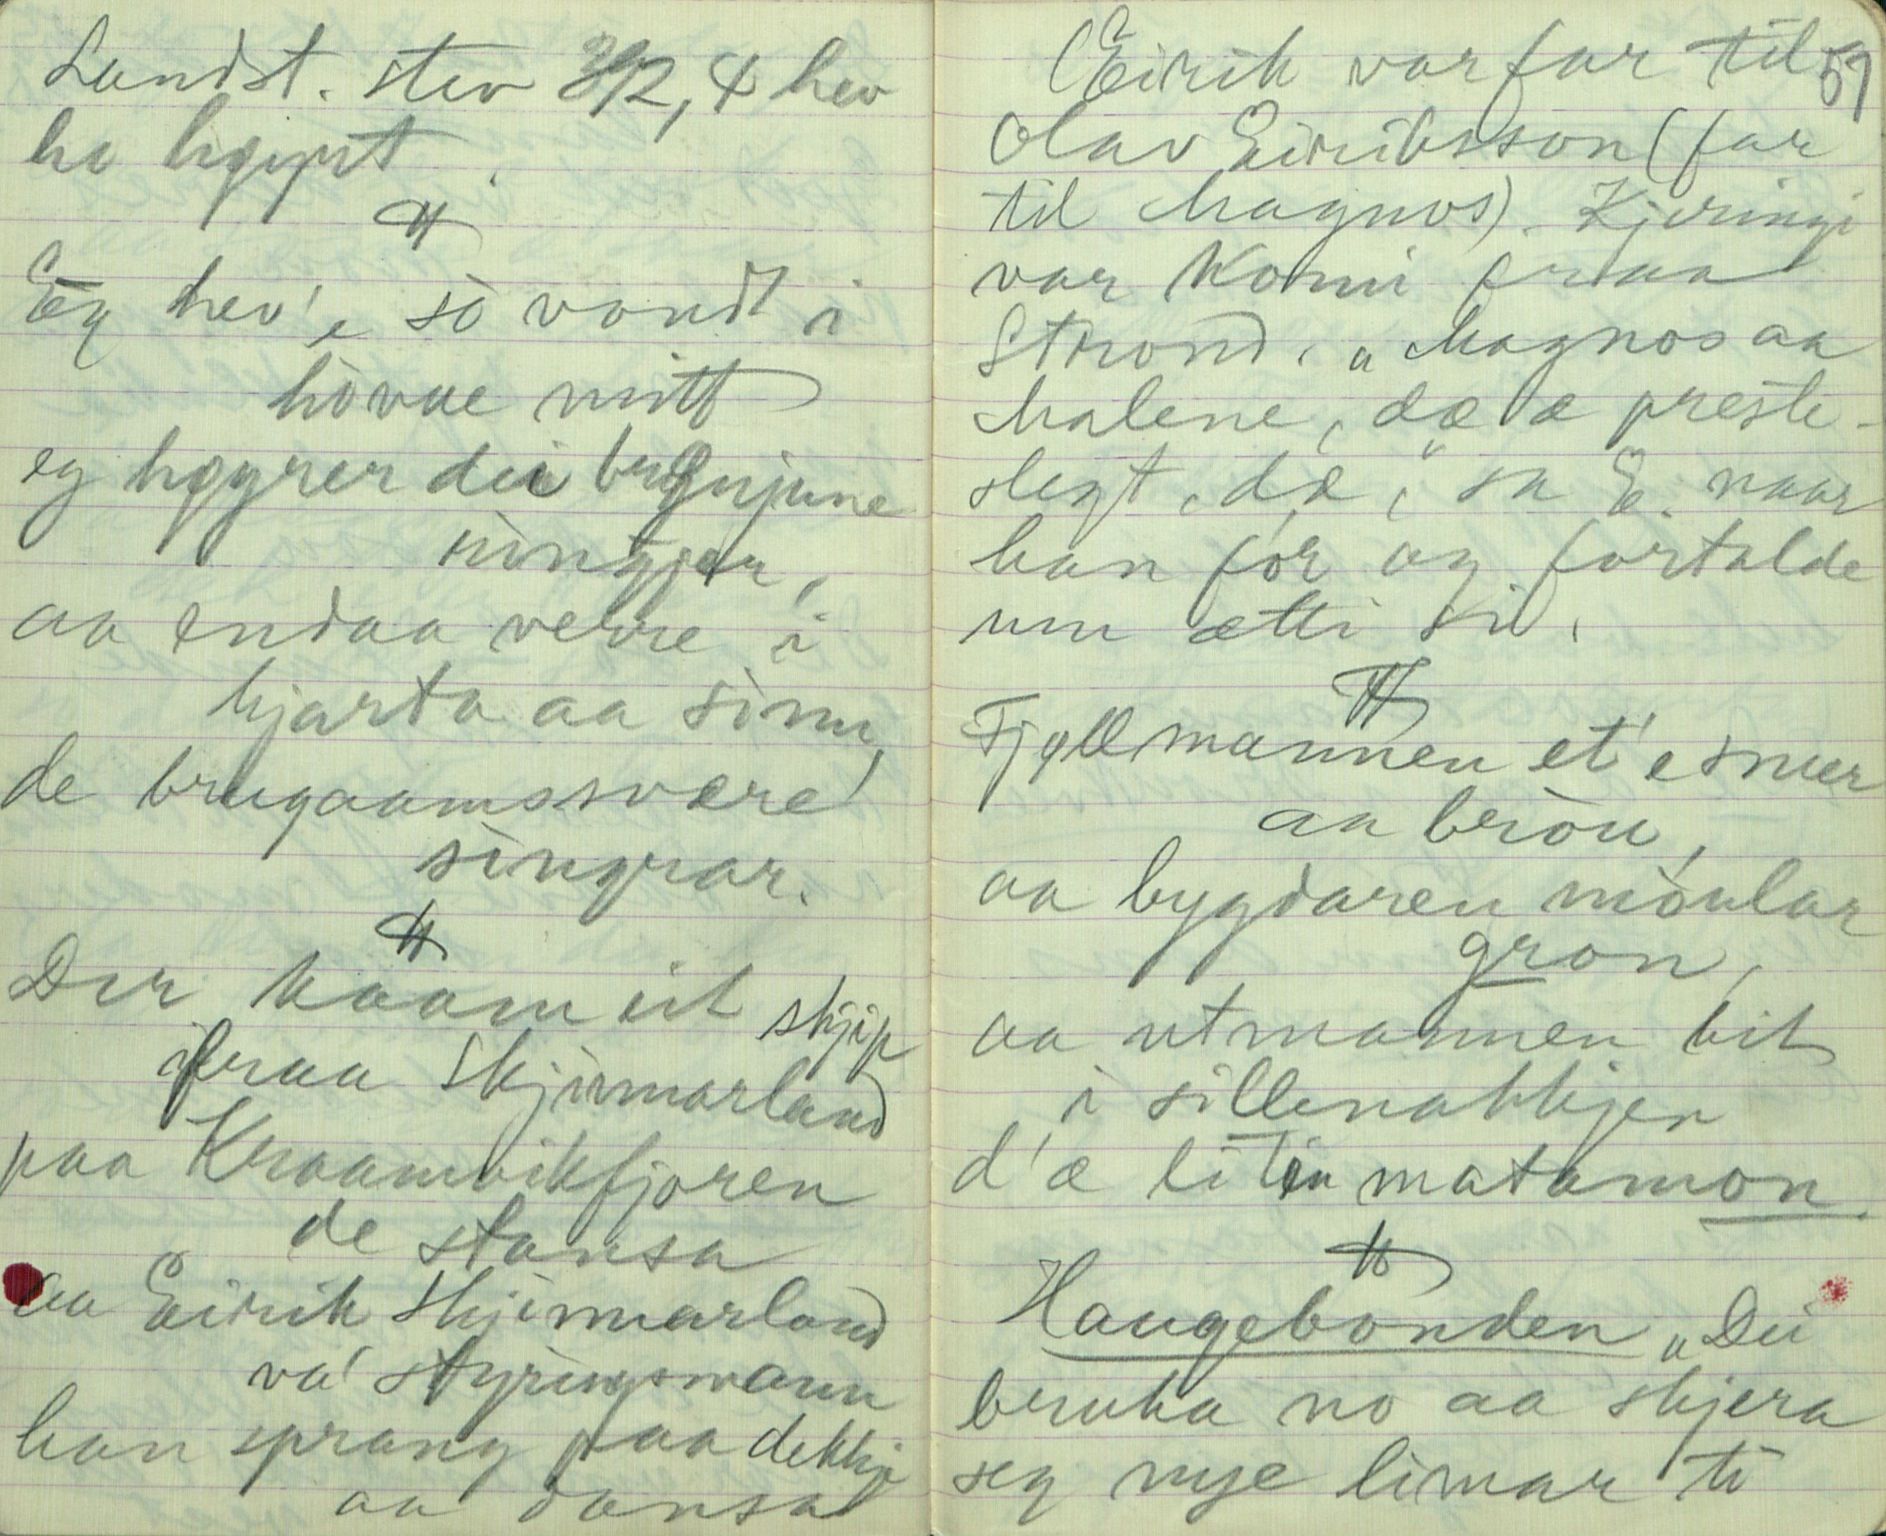 Landst. stev 3/2, 4 hev
ho høyrt.
Eg hev'e so vondt i
hòvue mitt
eg høyrer dei brynjune
ringjer,
aa endaa verre i
hjarta aa sinn,
de brugaamssvære'
singrar.
Der kaam eit skjip
ifraa Skjinnarland
paa Kraamvikfjoren
de stansa
aa Eirik Skjinnarland
va' styringsmann
han sprang paa dekkje
aa dansa
59
(Eirik var far til
Olav Eiriksson (far
til Magnos). Kjeringi
var komi fraa
Strond. „Magnos aa
Malene, dæ æ preste-
slegt, dæ," sa E. naar
han fór og fortalde
um ætti si.
Fjøllmannen et'e smer
aa bròu,
aa bygdaren mòular
gron,
aa utmannen bit
i sillenakkjen
d'æ liten matamon.
Haugebonden „Dei
bruka no aa skjera
seg nye limar te